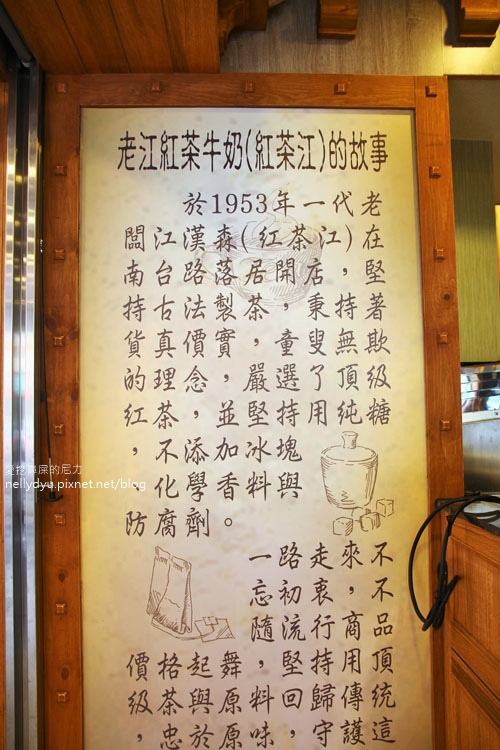 老江紅茶牛奶(紅茶江)的故事
於1953年一代老
闆江漢森(紅茶江)在
南台路落居開店，堅
持古法製茶，秉持著
貨真價實，童叟無欺
的理念，嚴選了頂級
紅茶，並堅持用純糖
，不添加冰塊
、化學香料與
防腐劑。
一路走來，不
忘初衷，不
隨流行商品
價格起舞，堅持用頂
級茶與原料，回歸傳統
忠於原味，守護這
nellydyu.pixnet.net/blog